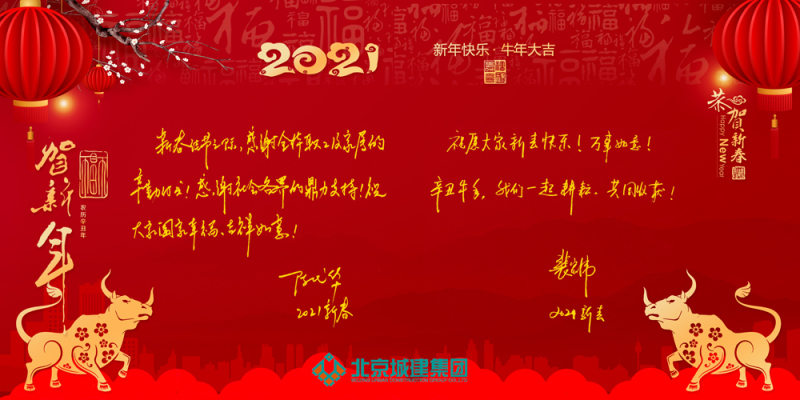 2021
新年快乐·牛年大吉
恭贺新春
Happy New Year
贺新年
福
农历辛丑年
新春佳节之际,感谢全体职工及家属的
辛勤付出!感谢社会各界的鼎力支持!祝
大家阖家幸福、吉祥如意!
2021新春
祝愿大家新春快乐!万事如意!
辛丑牛年,我们一起耕耘、共同收获!
裴宏伟
2021新春
北京城建集团
BEIJING URBAN CONSTRUCTION GROUP CO.,LTD